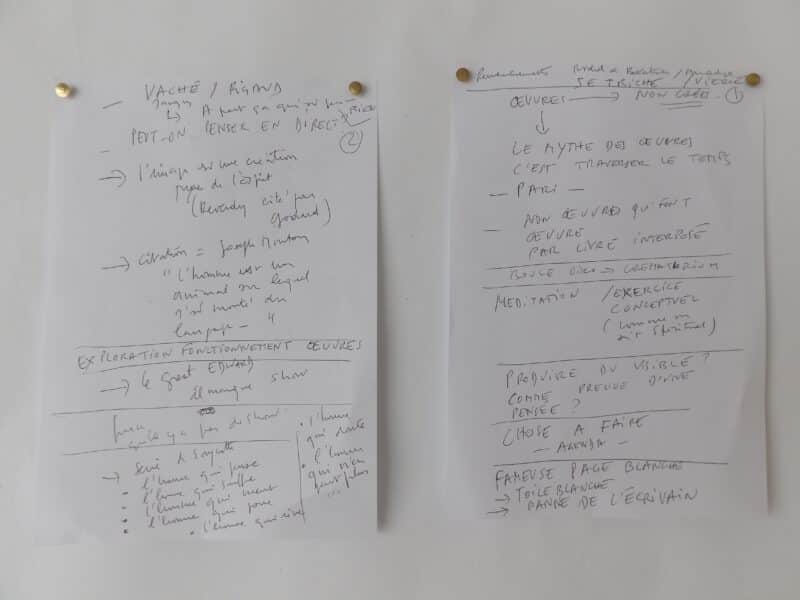 — VACHÉ / RIGAUD
Jacques
↳ A part ça qui
RIEN
— PEUT-ON PENSER EN DIRECT
②
→ l'image est une création
pure de l'esprit
(Reverdy cité par
Godard)
→ Citation = Joseph Mouton
" l'homme est un
animal sur lequel
s'est monté du
langage — "
EXPLORATION FONCTIONNEMENT ŒUVRES
→ le great EDWARD
il manque show
qu'il y a pas de show.
→ Série de
• l'homme qui pense
• l'homme qui souffle
• l'homme qui ment
• l'homme qui pose
• l'homme qui rêve
• l'homme
qui doute
• l'homme
qui n'en
peut plus
...
SE TRICHE / VIERGE
ŒUVRES → NON CRÉÉ ①
↓
LE MYTHE DES ŒUVRES
C'EST TRAVERSER LE TEMPS
— PARI —
— NON ŒUVRES QUI FONT
ŒUVRE
PAR LIVRE INTERPOSÉ
MEDITATION / EXERCICE
CONCEPTUEL
(comme on
dit spirituel)
PRODUIRE DU VISIBLE ?
COMME PREUVE D'UNE
PENSÉE ?
CHOSE A FAIRE
— AGENDA —
FAMEUSE PAGE BLANCHE
→ TOILE BLANCHE
→ PANNE DE L'ÉCRIVAIN